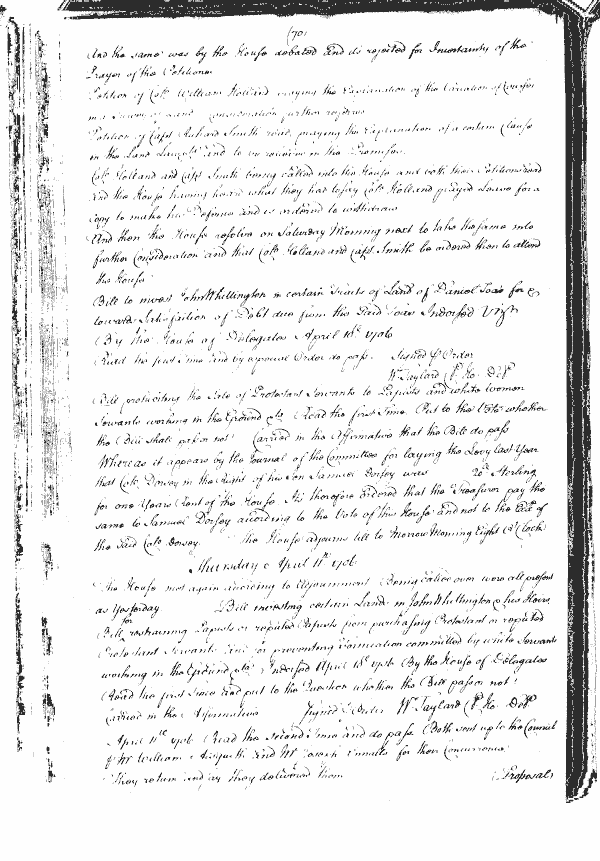 (70)
And the same was by the House debated and is rejected for Incertainty of the
Prayer of the Petitioner
Petition of Colo. William Holland praying the Explanation of the Variation of Courses
in a Survey of Land consideration further referred
Petition of Capt. Richard Smith read, praying the Explanation of a certain Clause
in the Land Law &c and to be releived in the Premises.
Colo. Holland and Capt. Smith being called into the House and both their Petitions read
And the House having heard what they had to say Colo. Holland prayed Leave for a
Copy to make his Defence and is ordered to withdraw
And then the House resolve on Saturday Morning next to take the same into
further Consideration and that Colo. Holland and Capt. Smith be ordered then to attend
the House
Bill to invest John Whittington in certain Tracts of Land of Daniel Toas for &
towards Satisfaction of Debt due from the said Toas Indorsed Vizt.
By the House of Delegates April 10th 1706
Read the first Time and by a special Order do pass. Signed p Order
W Taylard Cl. Ho. Delt
Bill prohibiting the Sale of Protestant Servants to Papists and white Women
Servants working in the Ground &ca. Read the first Time. Put to the Vote whether
the Bill shall pass or not? Carried in the Affirmative that the Bill do pass
Whereas it appears by the Journal of the Committee for laying the Levy last Year
that Colo. Dorsey in the Right of his Son Samuel Dorsey was 20£ Sterling
for one Years Rent of the House. Tis therefore ordered that the Treasurer pay the
same to Samuel Dorsey according to the Vote of this House and not to the Use of
the said Colo. Dorsey. The House adjourns till to Morrow Morning Eight o'Clock
Thursday April 11th 1706
The House met again according to Adjournment. Being called over were all present
as Yesterday Bill investing certain Land in John Whittington & his Heirs,
Bill for restraining Papists or reputed Papists from purchasing Protestant or reputed
Protestant Servants and for preventing Fornication committed by white Servants
working in the Ground &ca. Indorsed April 10th 1706 By the House of Delegates
Read the first Time and put to the Question whether the Bill pass or not?
Carried in the Affirmative Signed p Order W Taylard Cl. Ho. Delt
April 11th 1706 Read the second Time and do pass. Both sent up to the Council
by Mr William and Mr Joseph for their Concurrence
They return and say they delivered them
Proposal